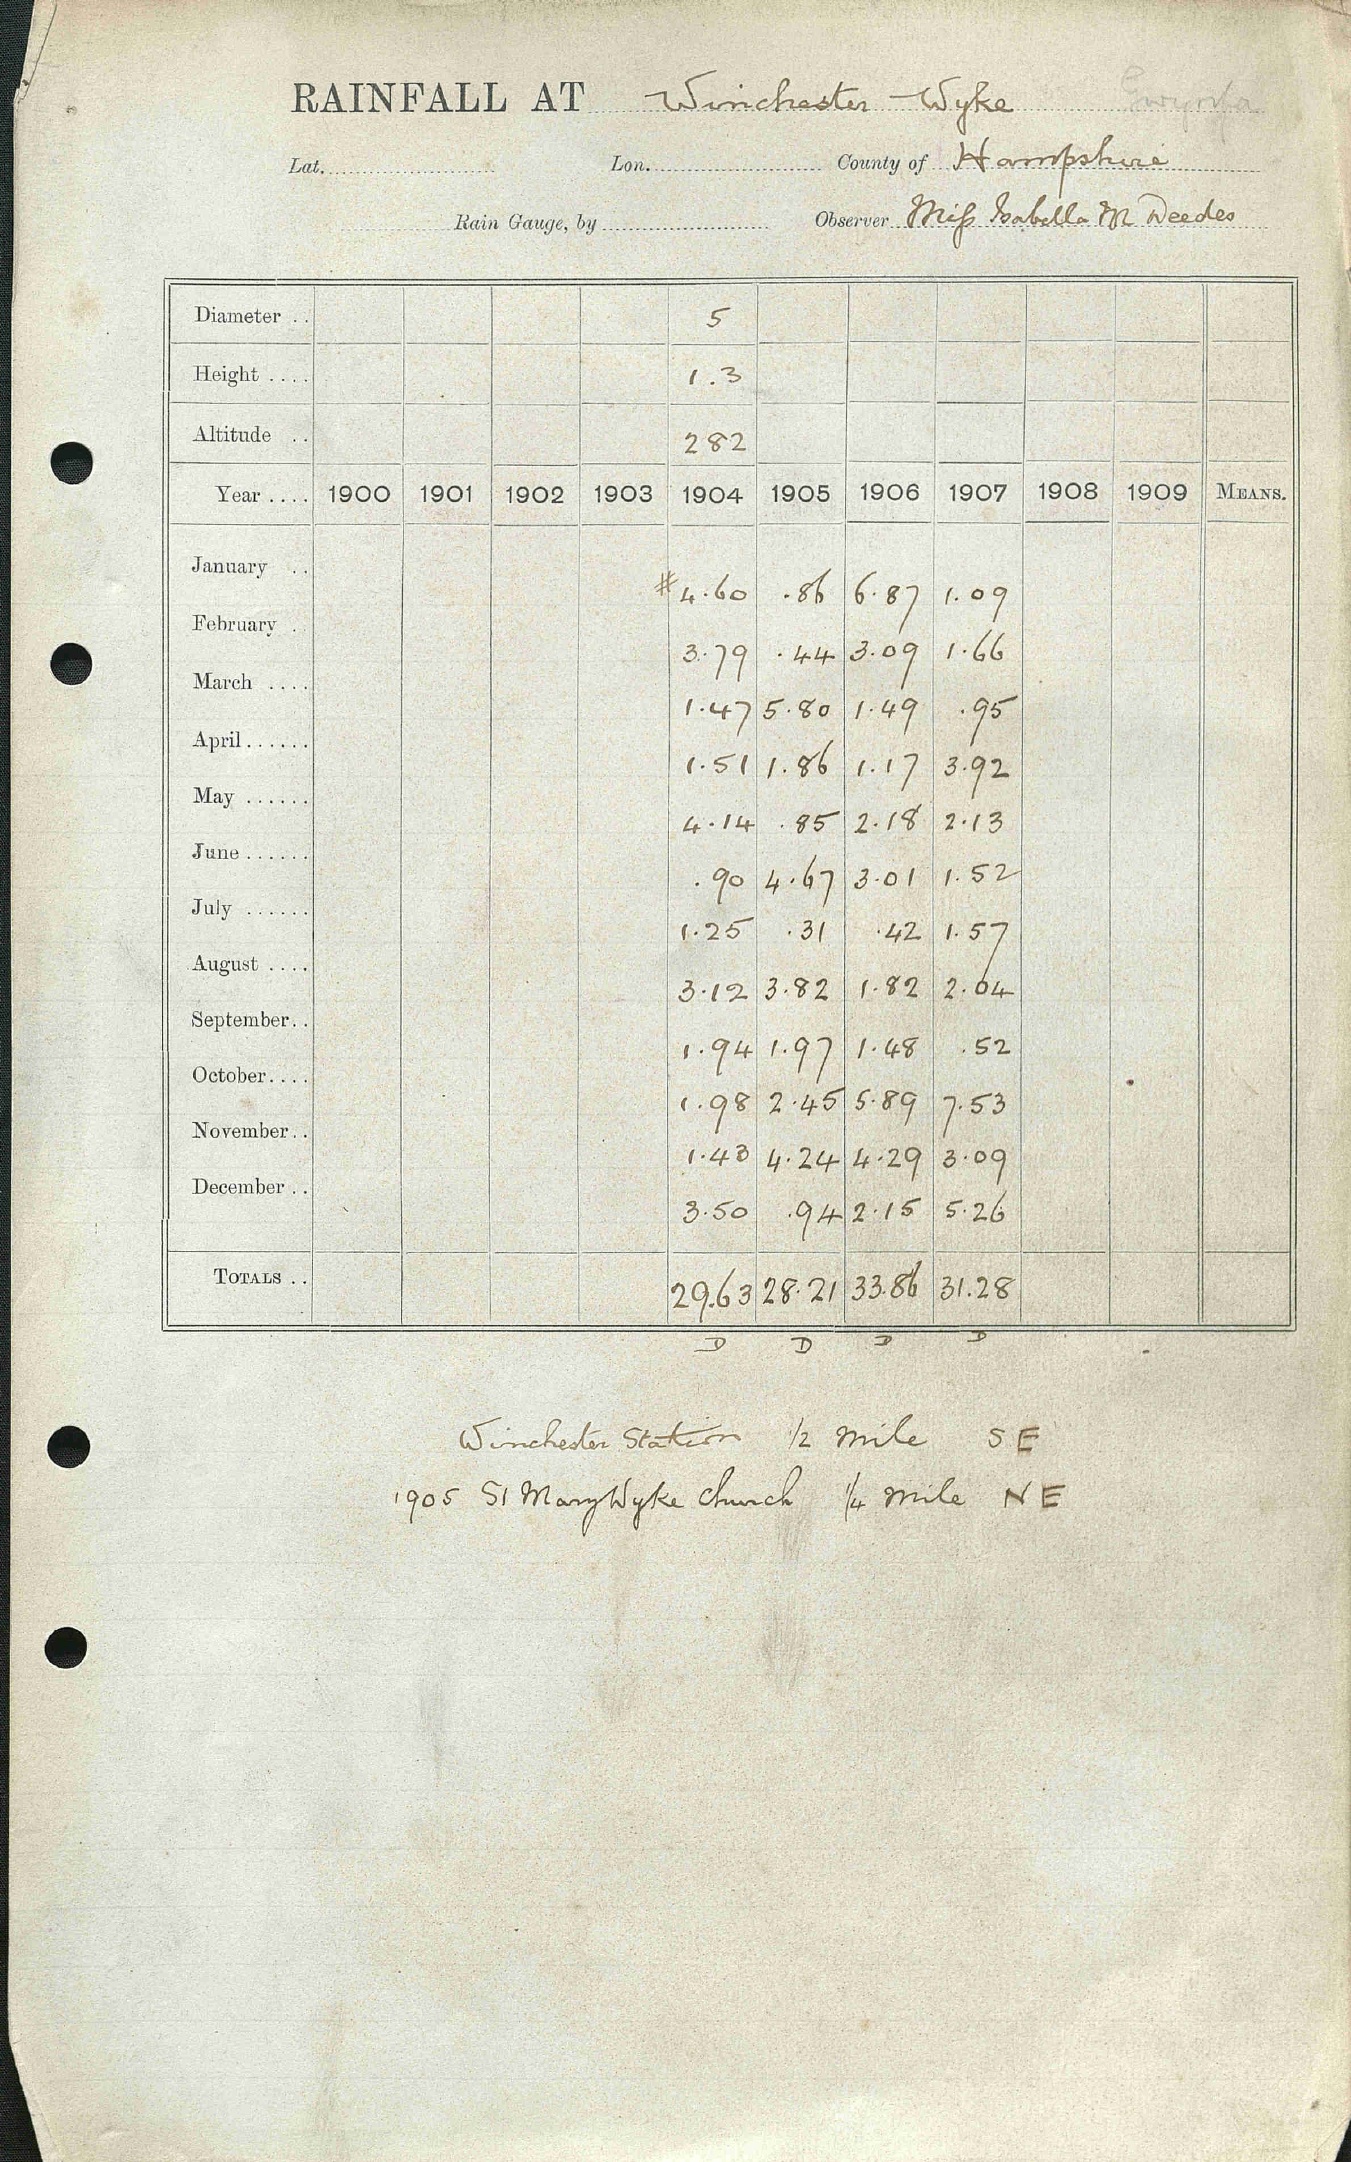 RAINFALL AT Winchester - Wyke
Lat. Lon. County of Hampshire
Rain Gauge, by Observer Miss Isabella M Weedes
Diameter .. 5
Height .... 1.3
Altitude .. 282
Year .... 1900 1901 1902 1903 1904 1905 1906 1907 1908 1909 MEANS.
January .. #4.60 .86 6.87 1.09
February . 3.79 .44 3.09 1.66
March .... 1.47 5.80 1.49 .95
April ...... 1.51 1.86 1.17 3.92
May ...... 4.14 .85 2.18 2.13
June ...... .90 4.67 3.01 1.52
July ...... 1.25 .31 .42 1.57
August .... 3.12 3.82 1.82 2.04
September.. 1.94 1.97 1.48 .52
October.... 1.98 2.45 5.89 7.53
November.. 1.43 4.24 4.29 3.09
December .. 3.50 .94 2.15 5.26
TOTALS .. 29.63 28.21 33.86 31.28
D D D D
Winchester Station 1/2 mile SE
1905 St Mary Wyke Church 1/4 mile NE